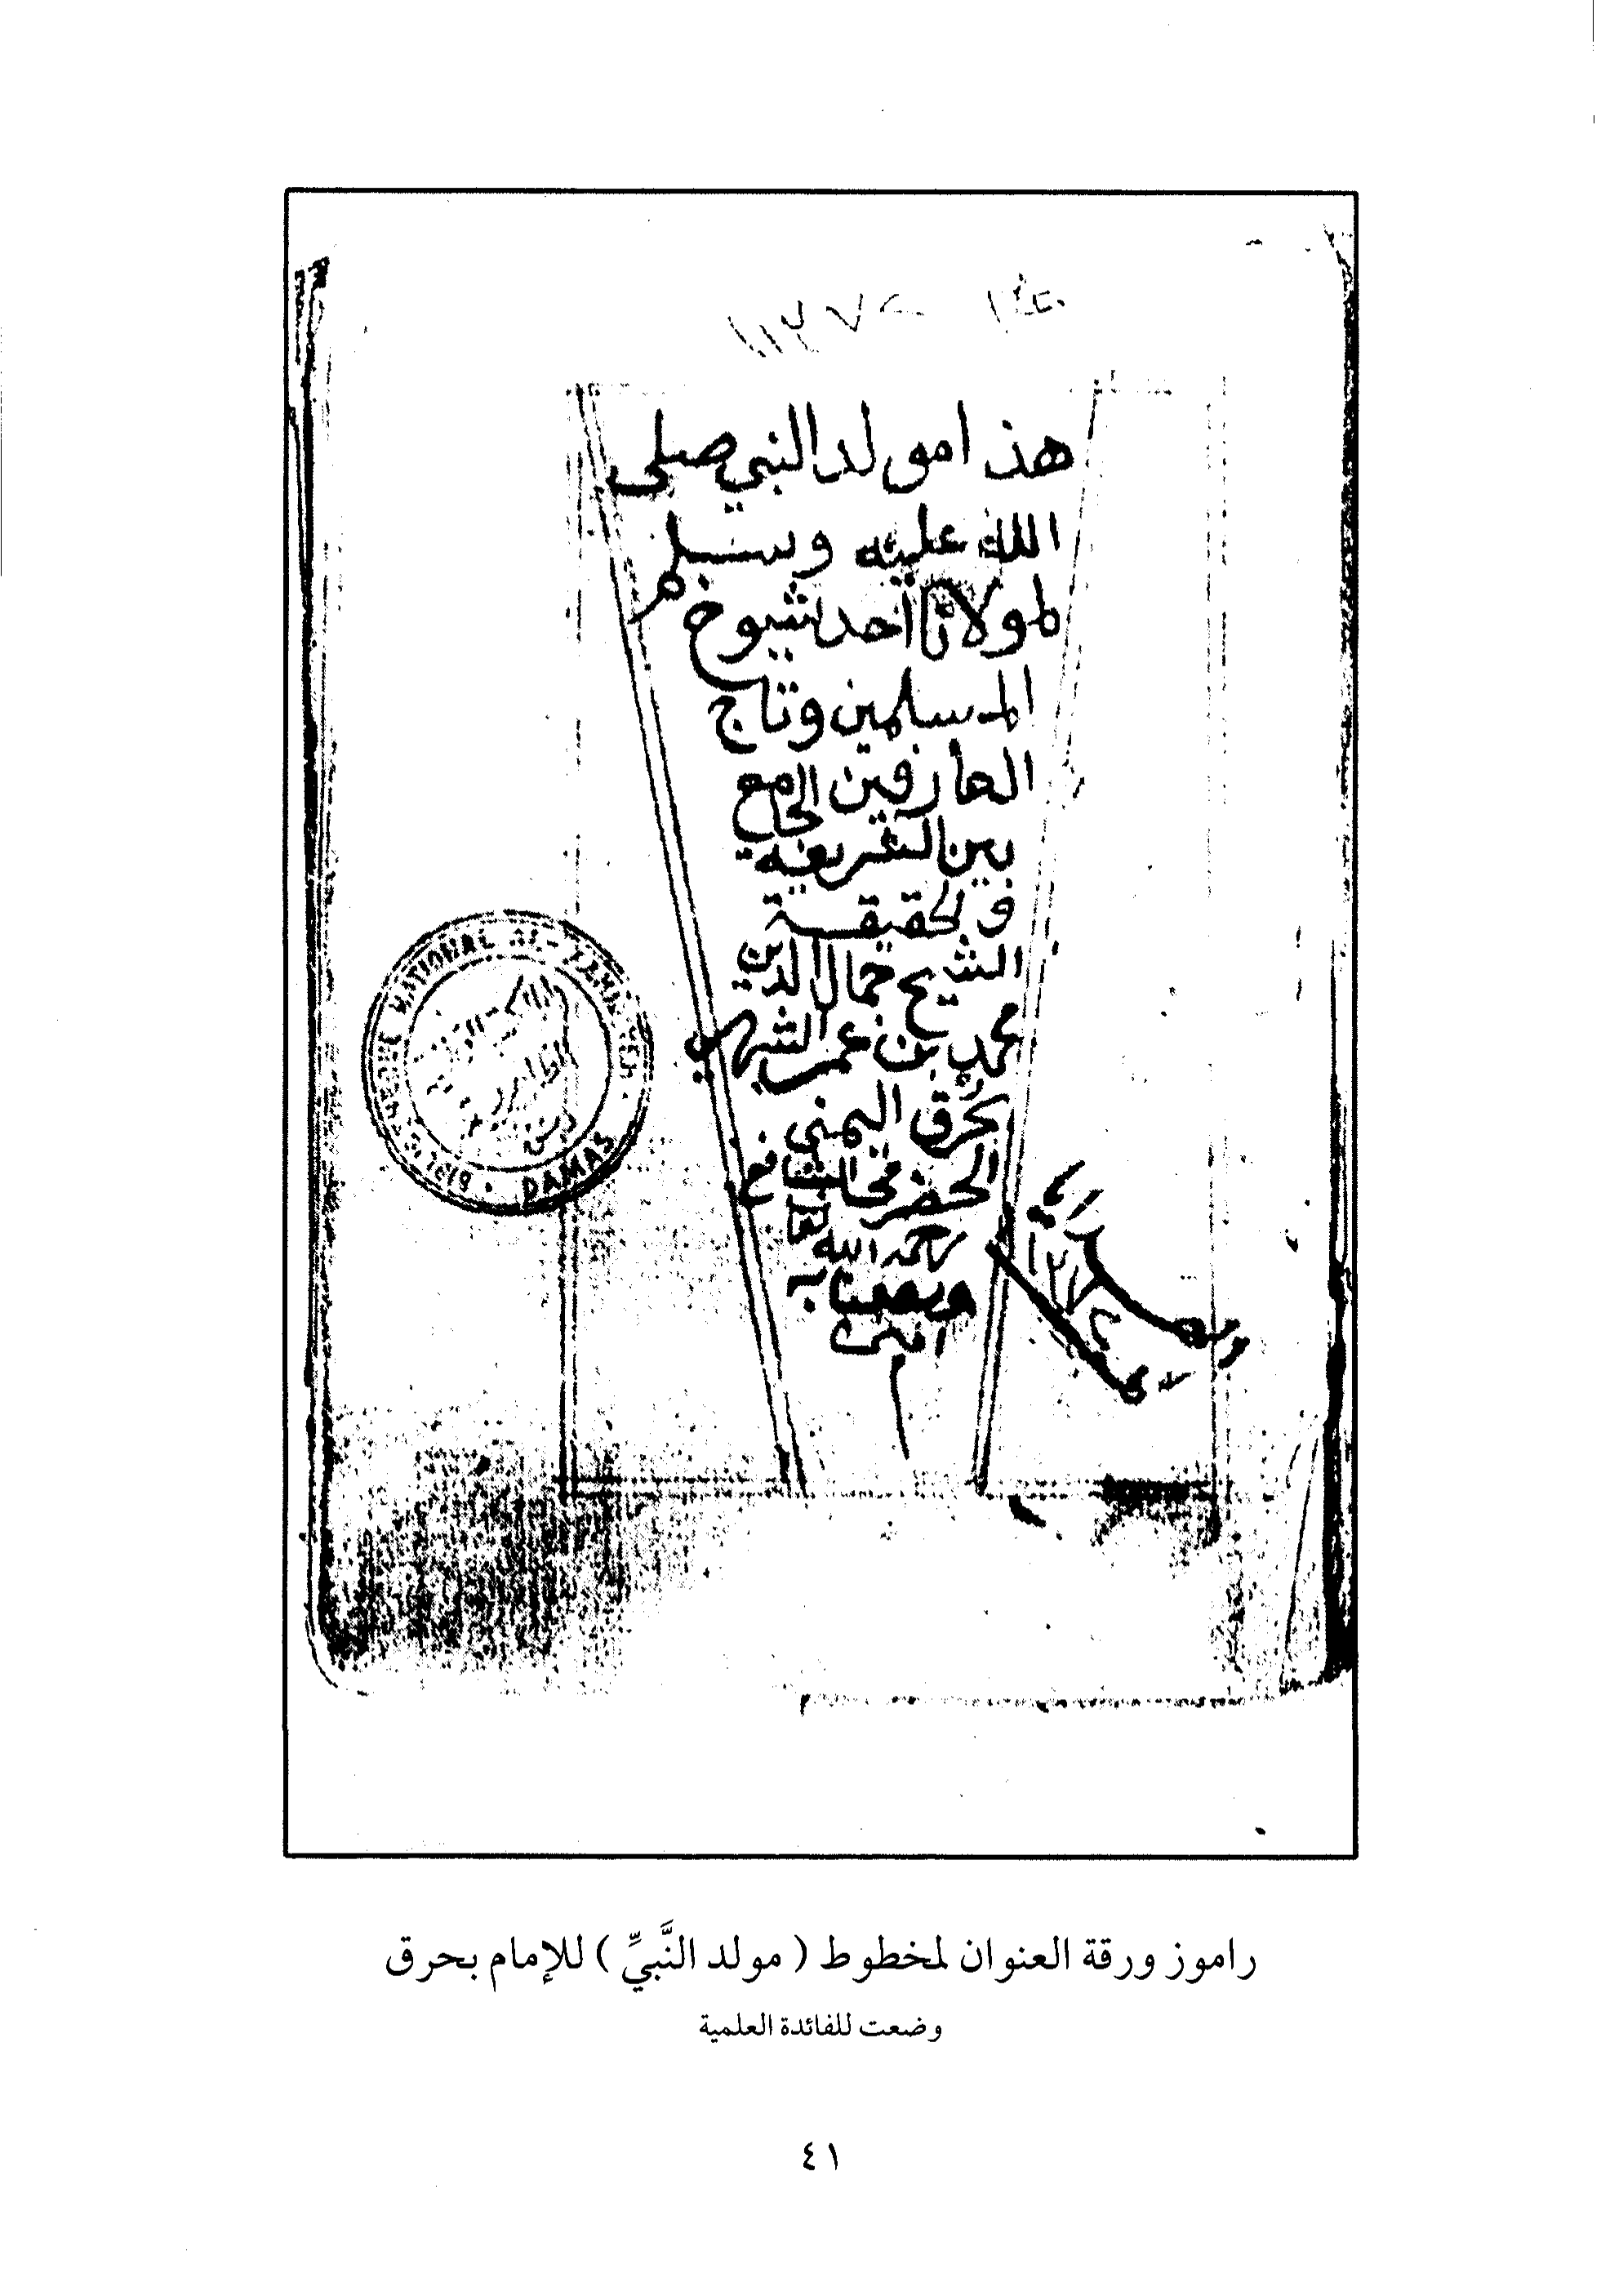 هذا مولد النبي صلى
الله عليه وسلم
لمولانا أحد شيوخ
المسلمين وتاج
العارفين الجامع
بين الشريعة
والحقيقة
الشيخ جمال الدين
محمد بن عمر الشهير
بحرق اليمني
الحضرمي الشافعي
رحمه الله تعا
ونفعنا به
امين
NATIONAL
DAMAS
راموز ورقة العنوان لمخطوط ( مولد النَّبيِّ ) للإمام بحرق
وضعت للفائدة العلمية
٤١